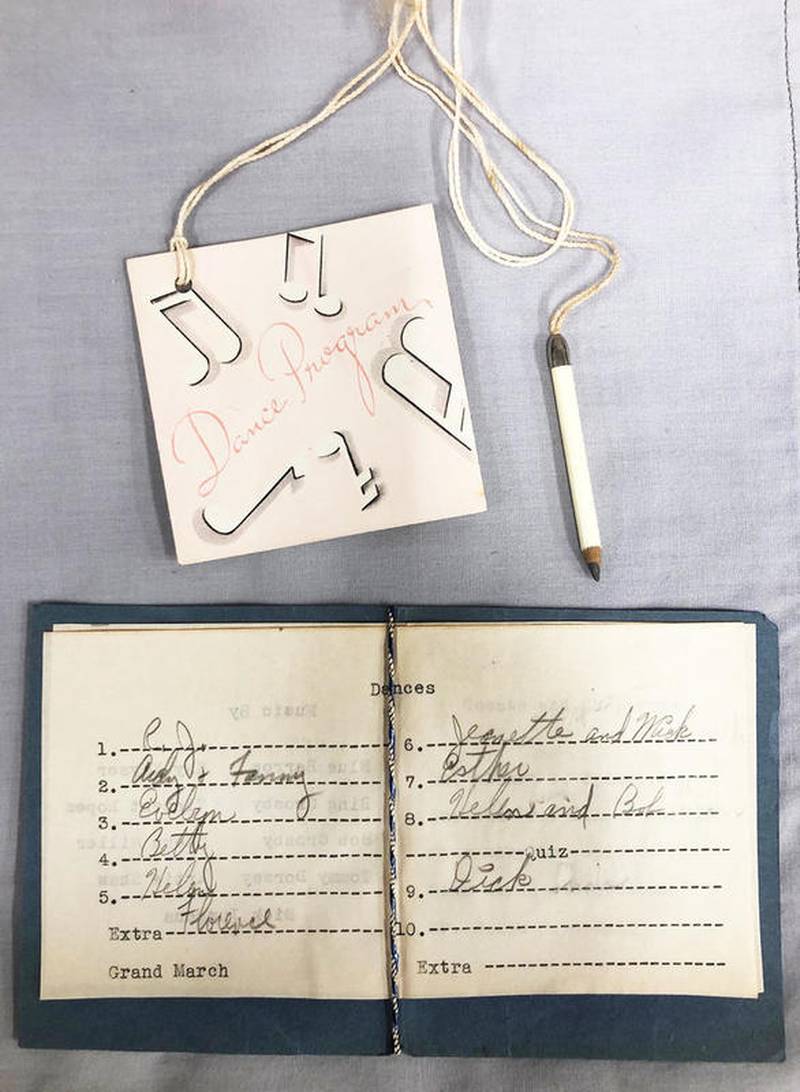 Dance Program
Dances
1. P. J.
2. Andy + Fanny
3. Evelyn
4. Betty
5. Helen
Extra Florence
Grand March
6. Jeanette and
7. Esther
8. Helen and Bob
Quiz
9. Dick
10.
Extra
Music By
Bing Crosby
Tommy Dorsey